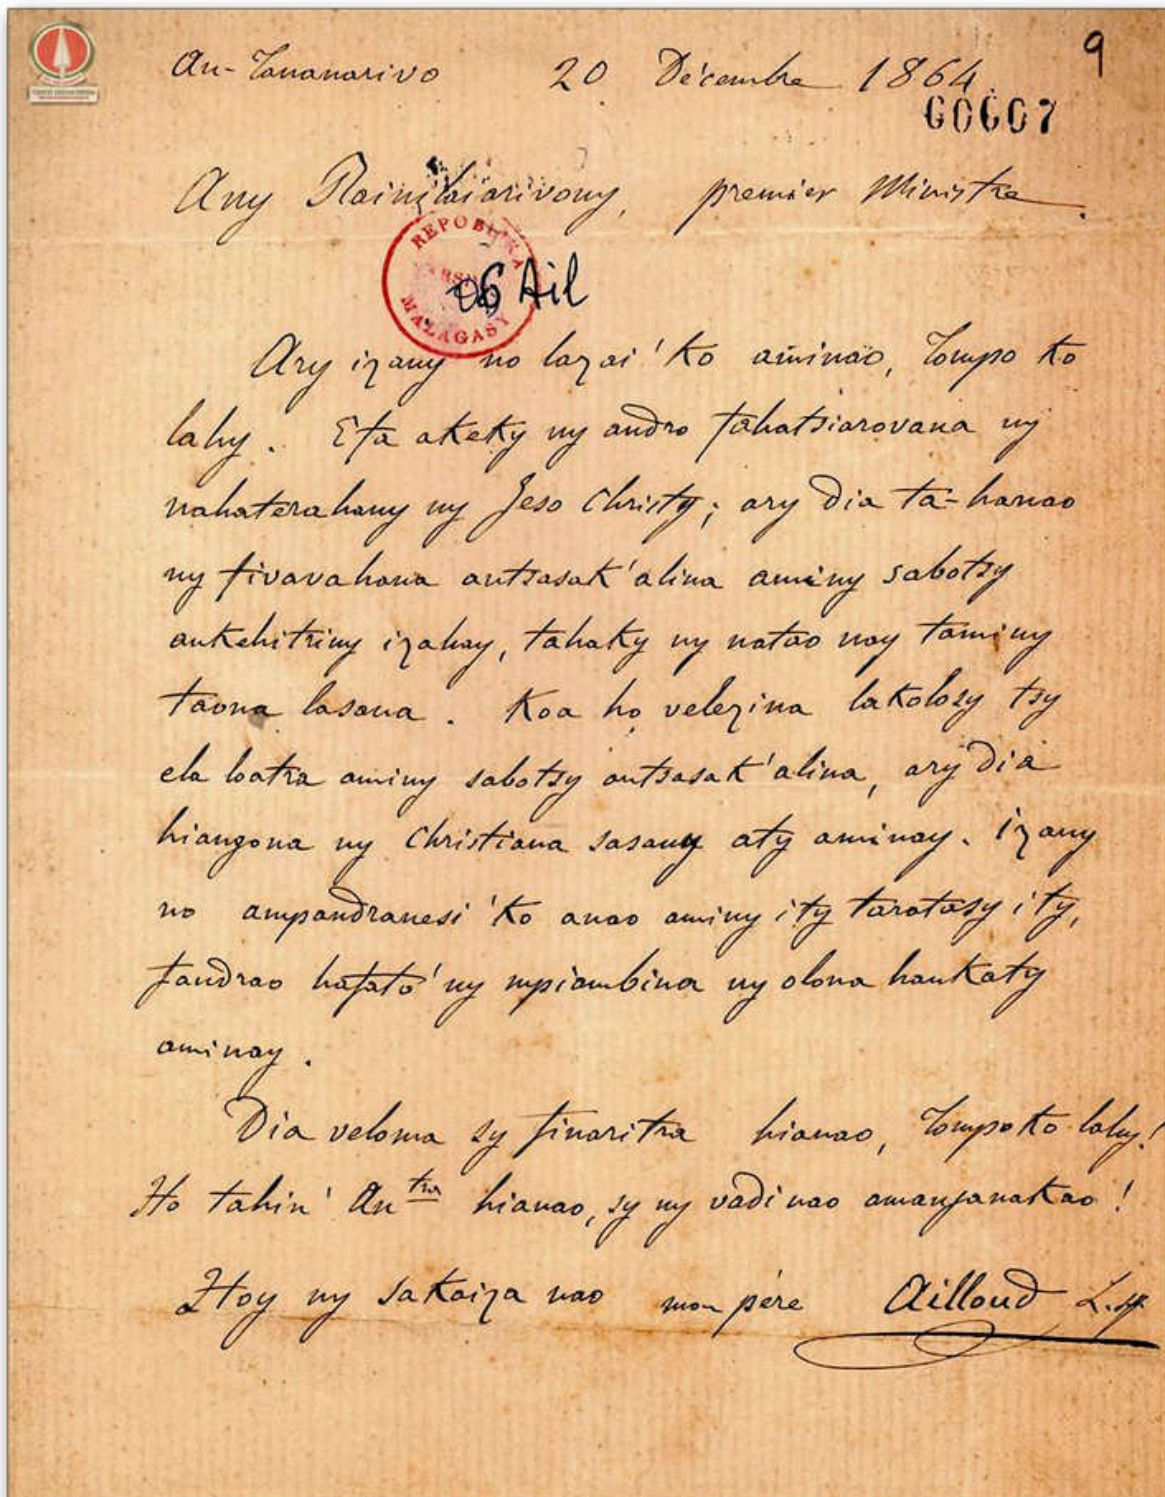 9
An-Tananarivo 20 Décembre 1864
60607
Any Rainilaiarivony, premier Ministre.
REPOBLIKA MALAGASY
06 Ail
Ary izany no lazai'ko aminao, Tompo ko
lahy. Efa akeky ny andro fahatsiarovana ny
nahaterahany ny Jeso Christy; ary dia ta-hanao
ny fivavahana antsasak'alina aminy sabotsy
ankehitriny izahay, tahaky ny natao nay taminy
taona lasana. Koa ho velezina lakolosy tsy
ela loatra aminy sabotsy antsasak'alina, ary dia
hiangona ny Christiana sasany aty aminay. izany
no ampandranesi'ko anao aminy ity taratasy ity,
fandrao hafato'ny mpiambina ny olona hankaty
aminay.
Dia veloma sy finaritra hianao, Tompoko lahy!
Ho tahin' An tra hianao, sy ny vadi nao amanjanakao!
Hoy ny sakaiza nao mon père Ailloud